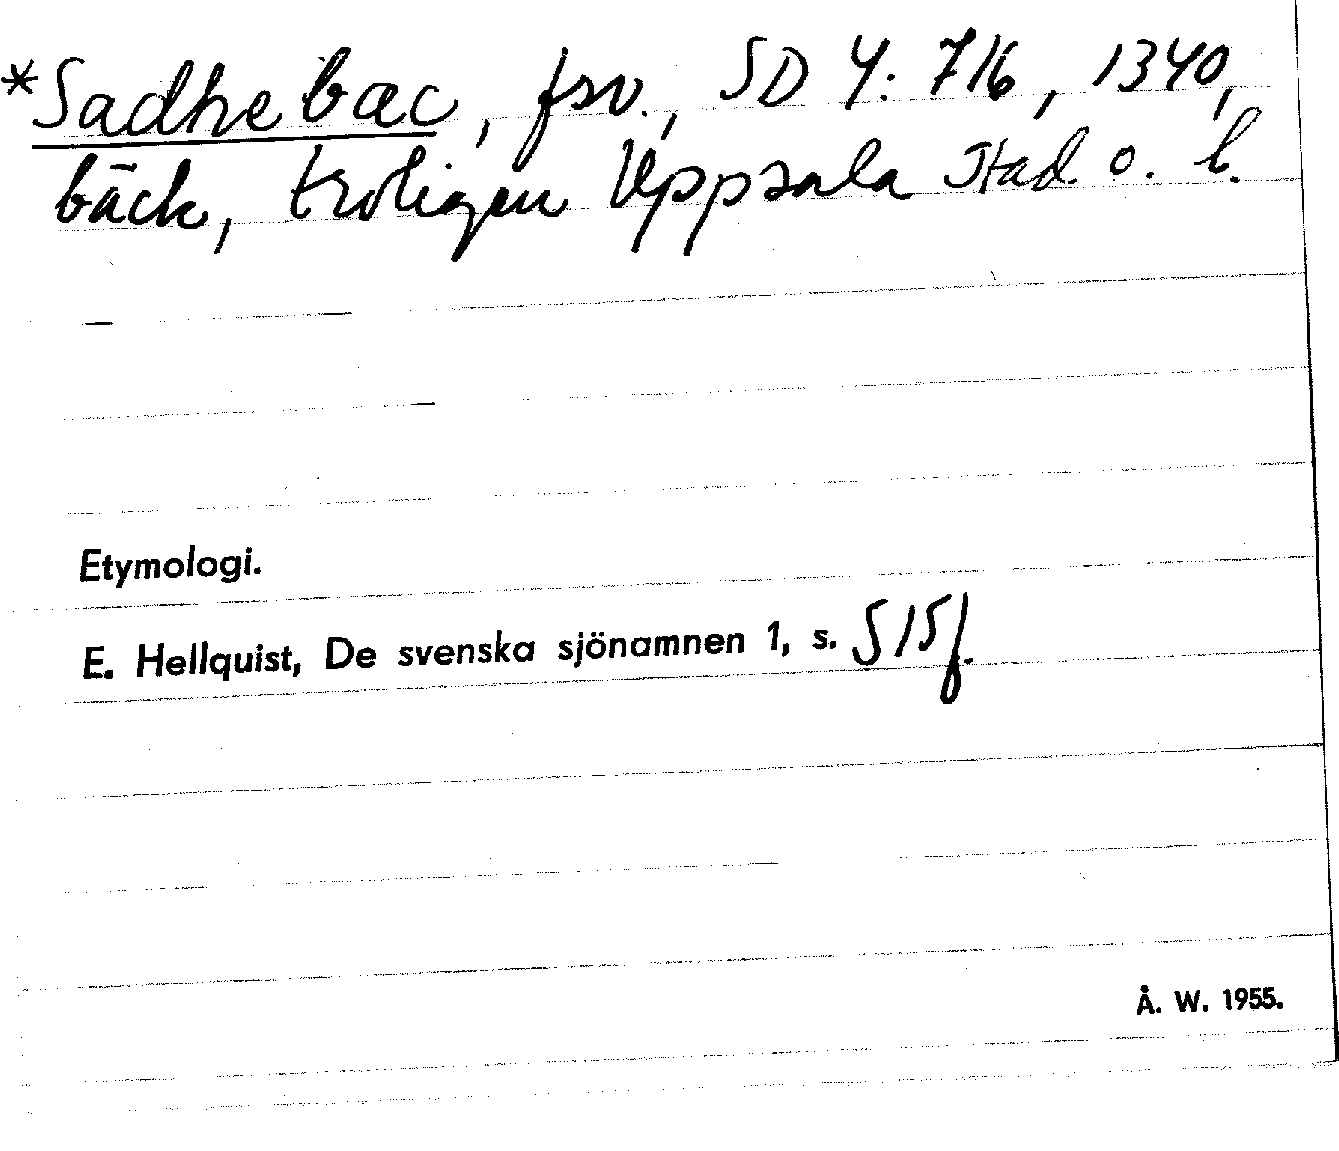 *Sadhebæc, fsv., SD 4: 716, 1340,
bäck, troligen Uppsala stad o. l.
Etymologi.
E. Hellquist, De svenska sjönamnen 1, s. 515f.
Å. W. 1955.